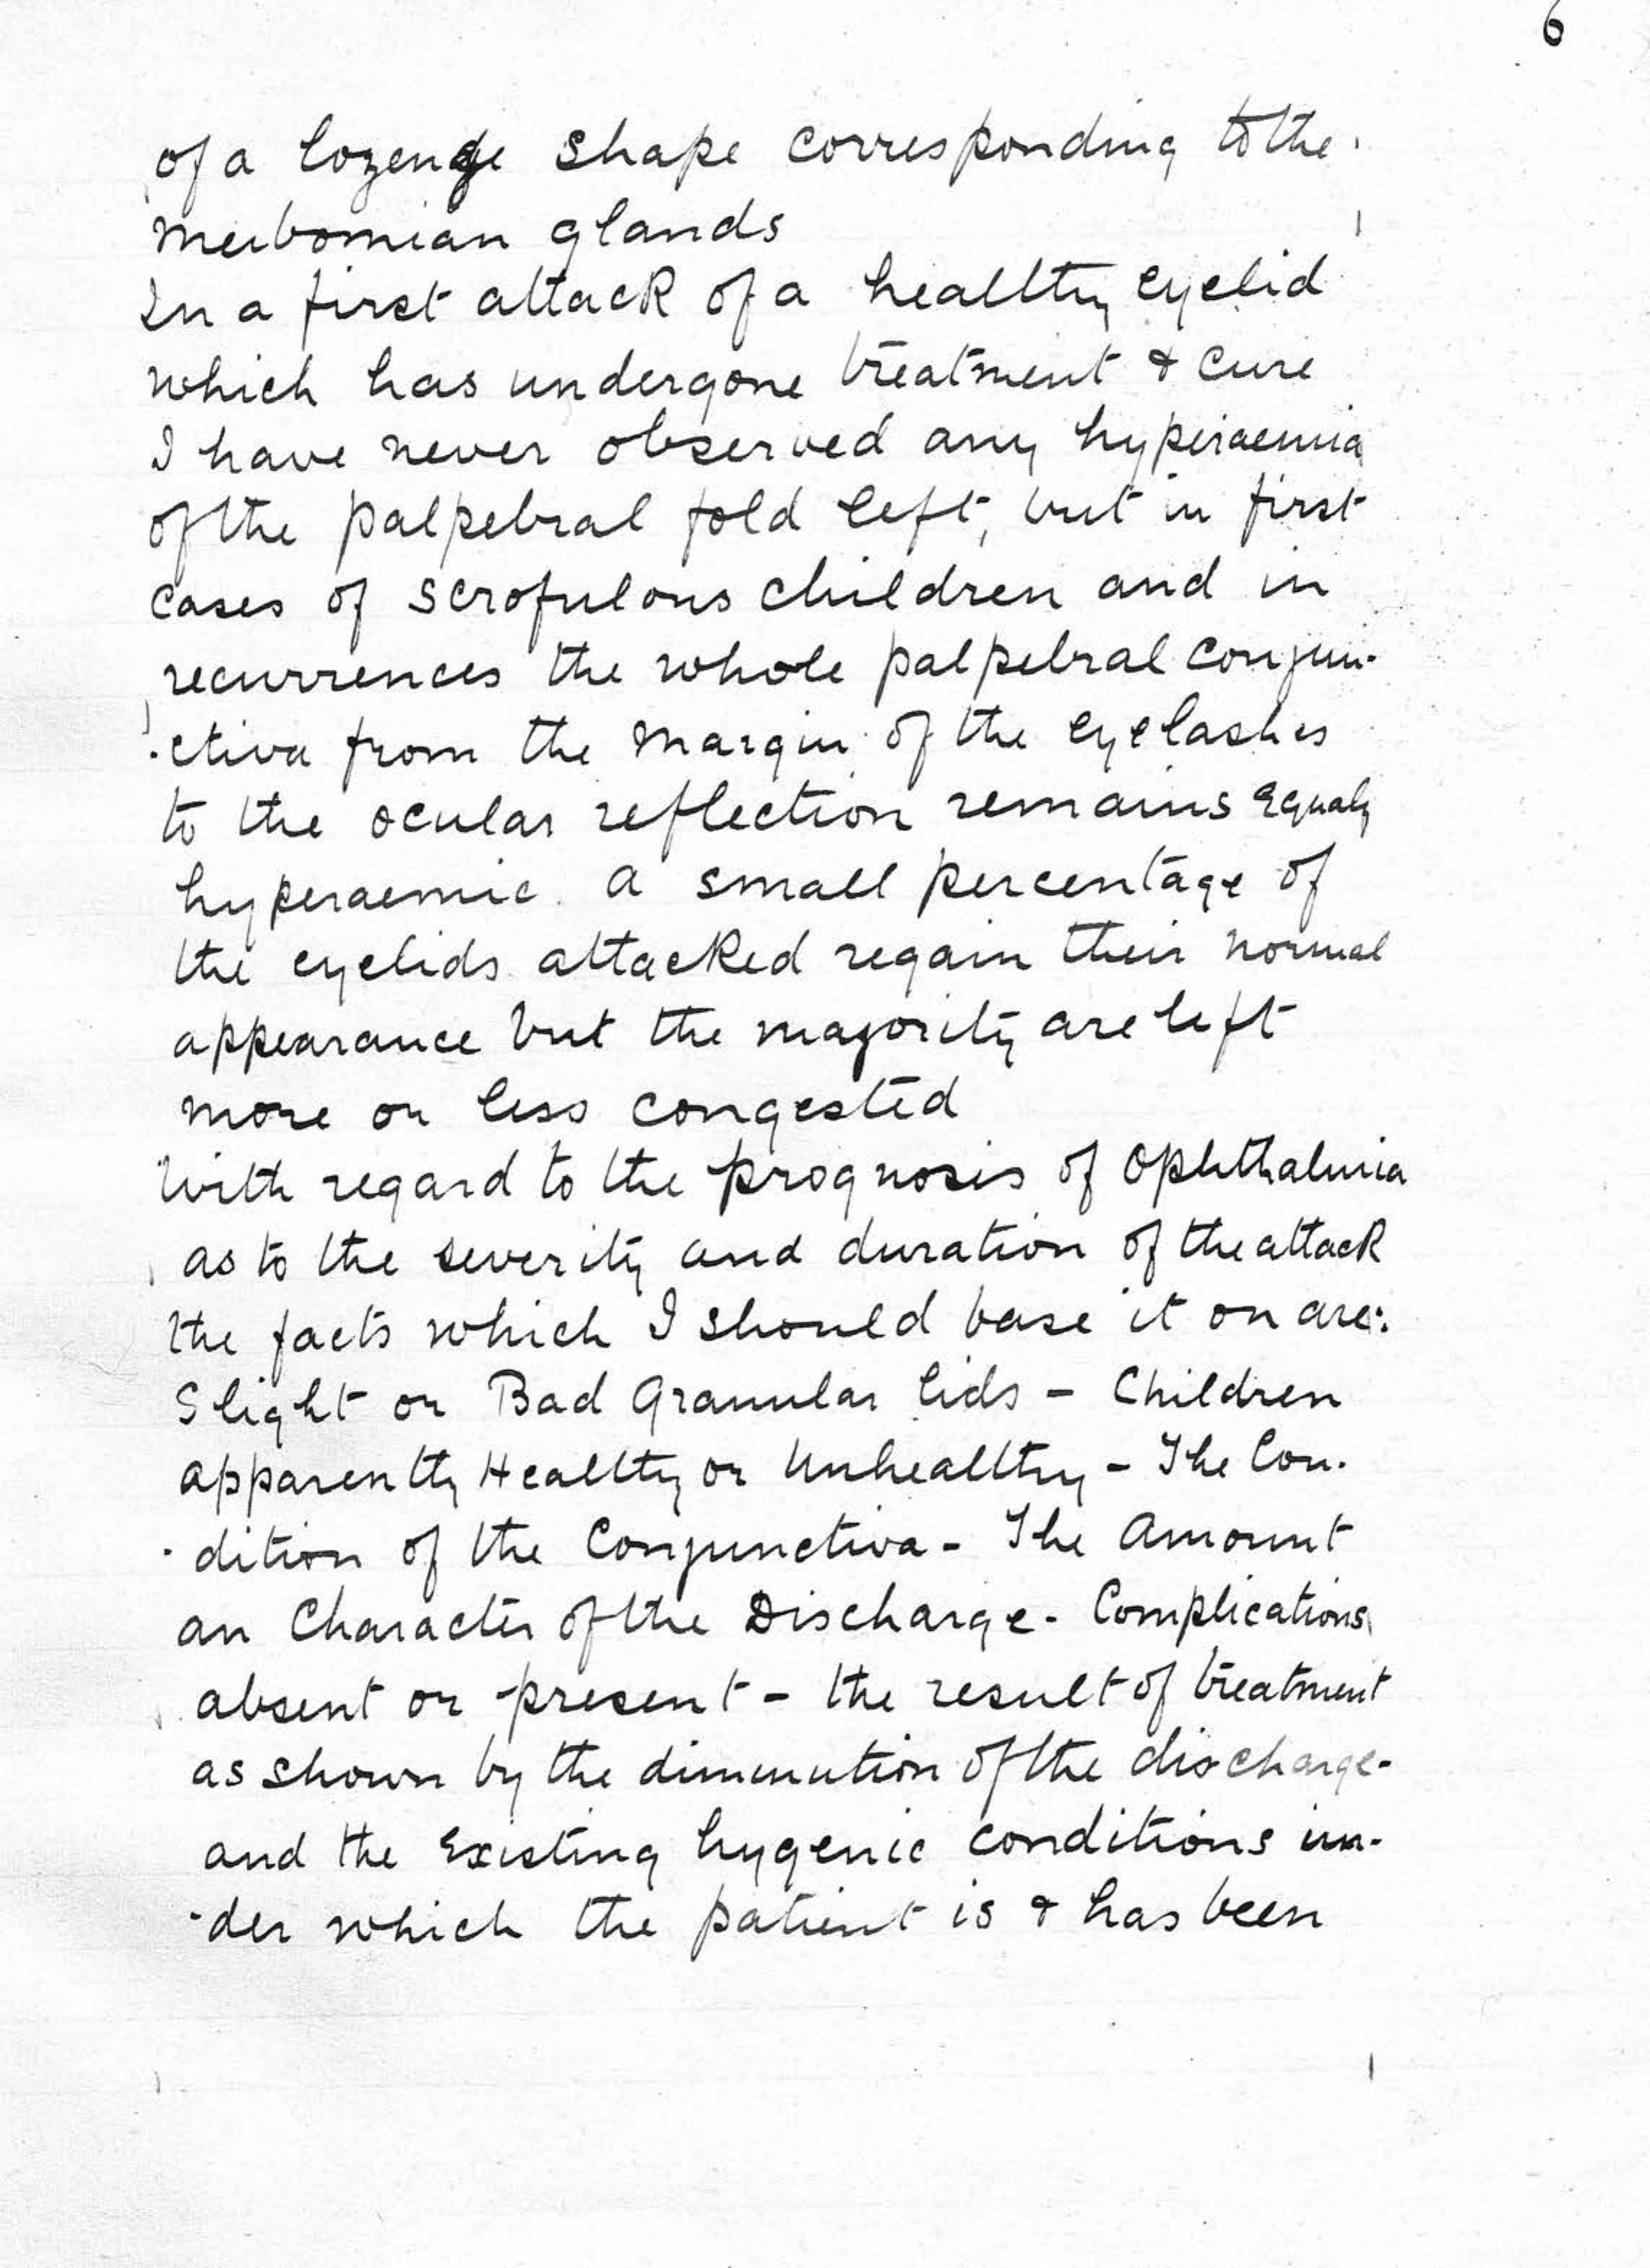 6
of a lozenge shape corresponding to the
meibomian glands
In a first attack of a healthy eyelid
which has undergone treatment & cure
I have never observed any hyperaemia
of the palpebral fold left, but in first
cases of scrofulous children and in
recurrences the whole palpebral conjun-
-ctiva from the margin of the eyelashes
to the ocular reflection remains equaly
hyperaemic. A small percentage of
the eyelids attacked regain their normal
appearance but the majority are left
more or less congested
With regard to the prognosis of Ophthalmia
as to the severity and duration of the attack
the facts which I should base it on are:
Slight or Bad Granular lids - Children
apparently Healthy or Unhealthy - The Con-
-dition of the Conjunctiva - The Amount
an Character of the Discharge - Complications
absent or present - the result of treatment
as shown by the dimunution of the discharge -
and the Existing hygenic conditions un-
-der which the patient is & has been